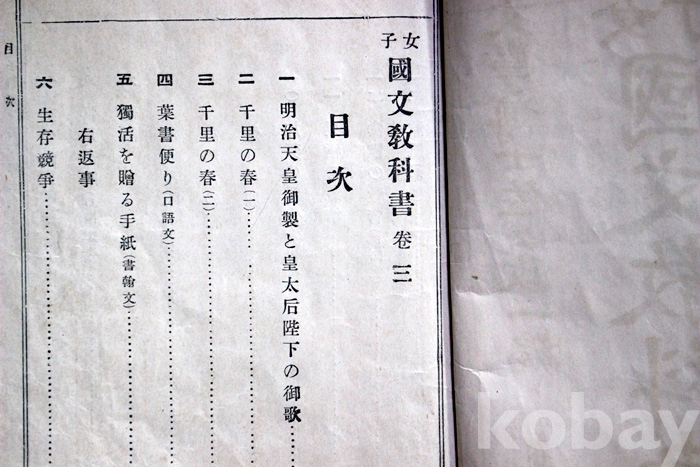 女子 國文教科書 卷三
目次
一 明治天皇御製と皇太后陛下の御歌…………
二 千里の春(一)…………
三 千里の春(二)…………
四 葉書便り(口語文)…………
五 獨活を贈る手紙(書翰文)…………
右返事
六 生存競爭…………
目次
kobay